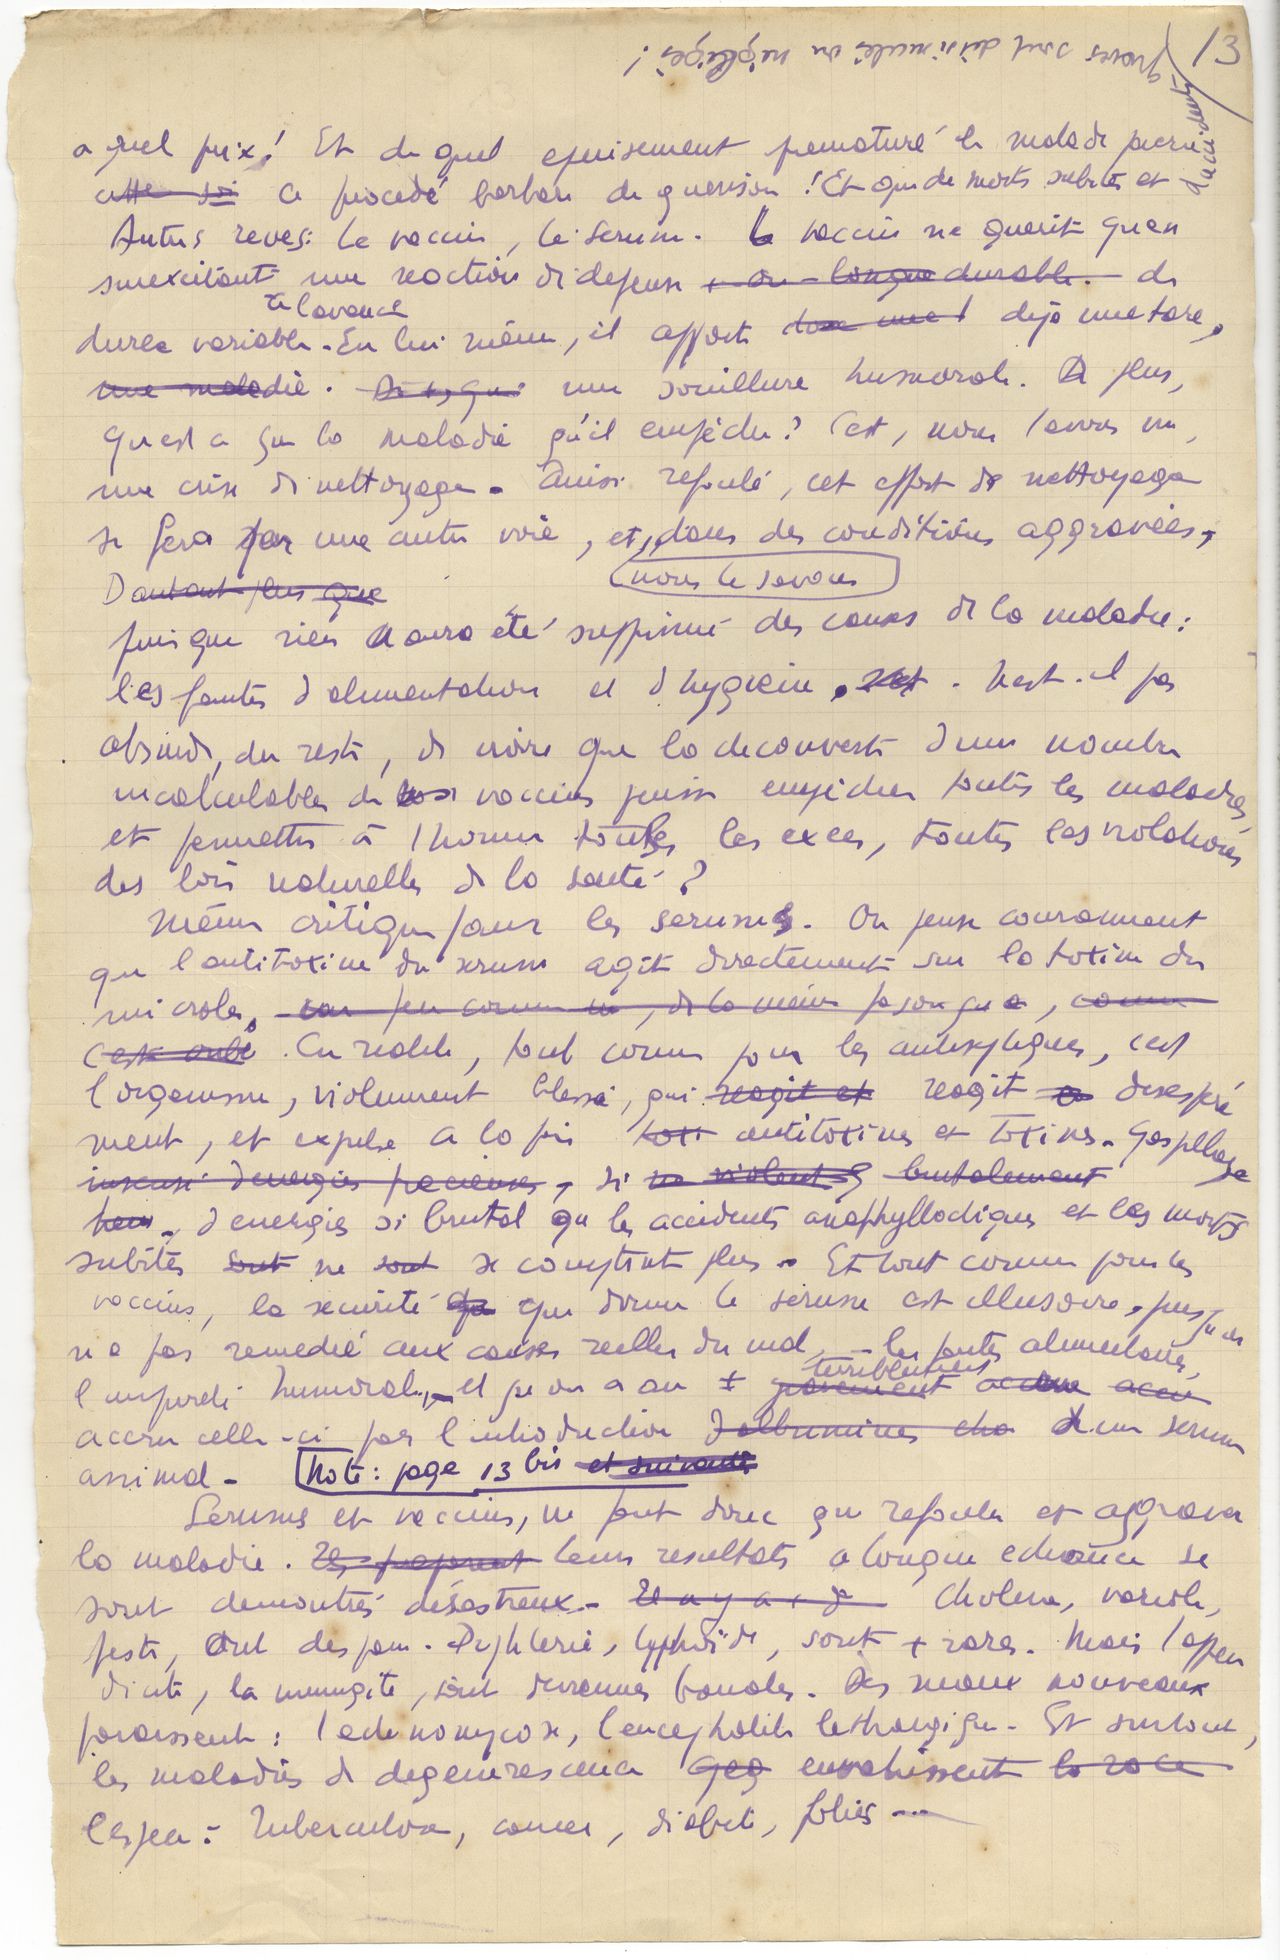 13
graves sont dissimulés ou négligés !
d'accidents
a quel prix ! Et de quel epuisement prematuré le malade paiera
cette ce procedé barbare de guerison ! Et que de morts subites et
Autres reves : Le vaccin, le serum. Le vaccin ne guerit qu'en
surexcitant une reaction di defense + ou - longue durable. de
duree variable. En lui même, il apporte dejà une tare,
une maladie. De +, que une souillure humorale. De plus,
quest ce que la maladie qu'il empêche ? C'est, nous l'avons vu,
une crise di nettoyage. Ainsi refoulé, cet effort de nettoyage
se fera par une autre voie, et, dans des conditions aggravées,
D'autant plus que
nous le savons
puisque rien n'aura été supprimé des causes de la maladie :
les fautes d'alimentation et d'hygiene. N'est-il pas
absurde, du reste, de croire que la decouverte d'un nombre
incalculable de vaccins puisse empêcher toutes les maladies,
et permettre à l'homme toutes les exces, toutes les violations
des lois naturelles de la santé ?
Même critique pour les serums. On pense couramment
que l'antitoxine du serum agit directement sur la toxine du
microbe,
C'est oublié. En realité, tout comme pour les antiseptiques, c'est
l'organisme, violemment blessé, qui reagit et reagit desespéré
ment, et expulse a la fois toxi antitoxines et toxines. Gaspillage
insensé d'energies precieuses, si violent brutalement
d'energies si brutal que les accidents anaphyllactiques et les morts
subites sont ne sont se comptent plus. Et tout comme pour les
vaccins, la securité que donne le serum est illusoire, puisqu'on
n'a pas remedié aux causes reelles du mal, les fautes alimentaires,
terriblement
l'impureté humorale, et qu'on a au + gravement accru
accru celle-ci par l'introduction d'albumines d'un serum
animal. Note : page 13 bis et suivantes
Serums et vaccins, ne font donc que refouler et aggraver
la maladie. Leurs resultats a longue echéance se
sont demontrés désastreux. Il n'y a + de Cholera, variole,
peste, ont disparu. Diphterie, typhoïde, sont + rares. Mais l'appen
dicite, la meningite, sont devenues banales. Des maux nouveaux
paraissent : l'actinomycose, l'encephalite lethargique. Et surtout,
les maladies de degenerescence envahissent la race
l'espece : Tuberculose, cancer, diabete, folies ...